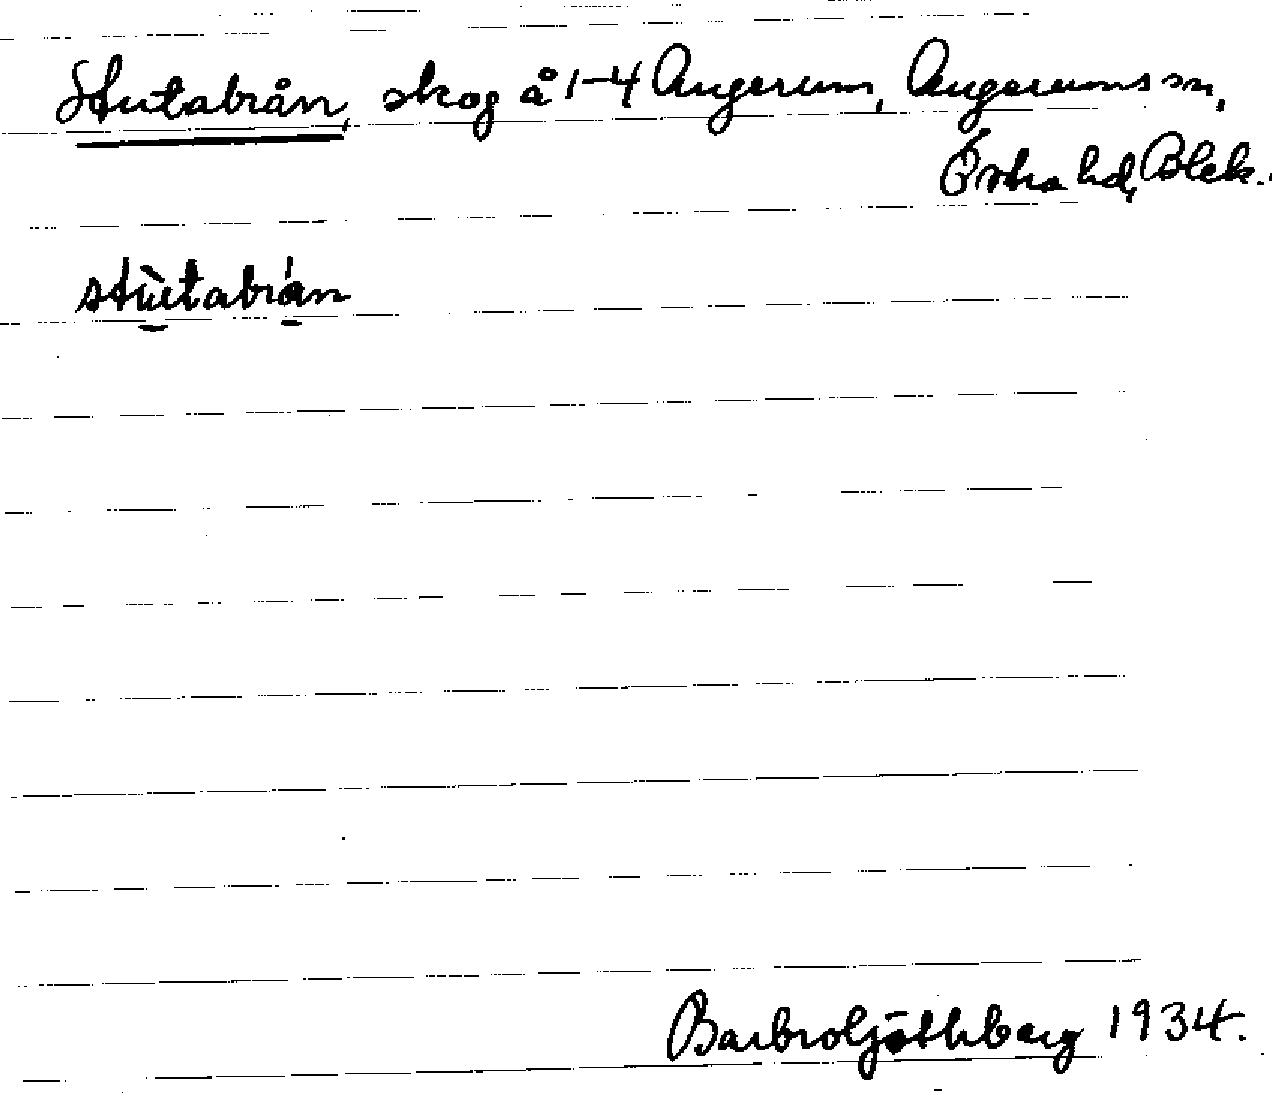 Stutabrån, skog å 1-4 Augerum, Augerums sn,
Östra hd, Blek.
stùtabrán
Barbro Göthberg 1934.